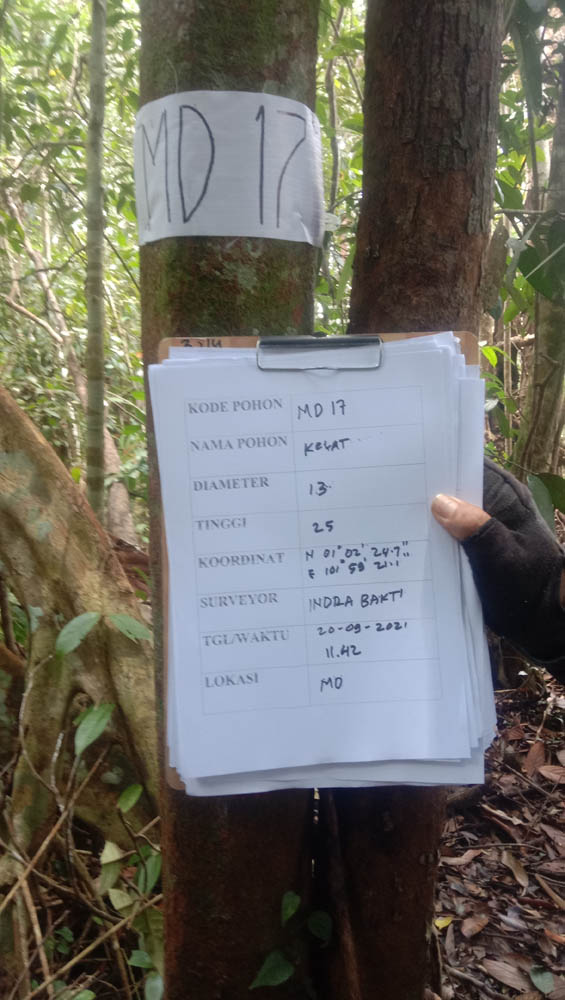 MD 17
KODE POHON MD 17
NAMA POHON KELAT
DIAMETER 13
TINGGI 25
KOORDINAT N 01° 02' 24.7"
E 101° 58' 21.1
SURVEYOR INDRA BAKTI
TGL/WAKTU 20-09-2021
11.42
LOKASI MD